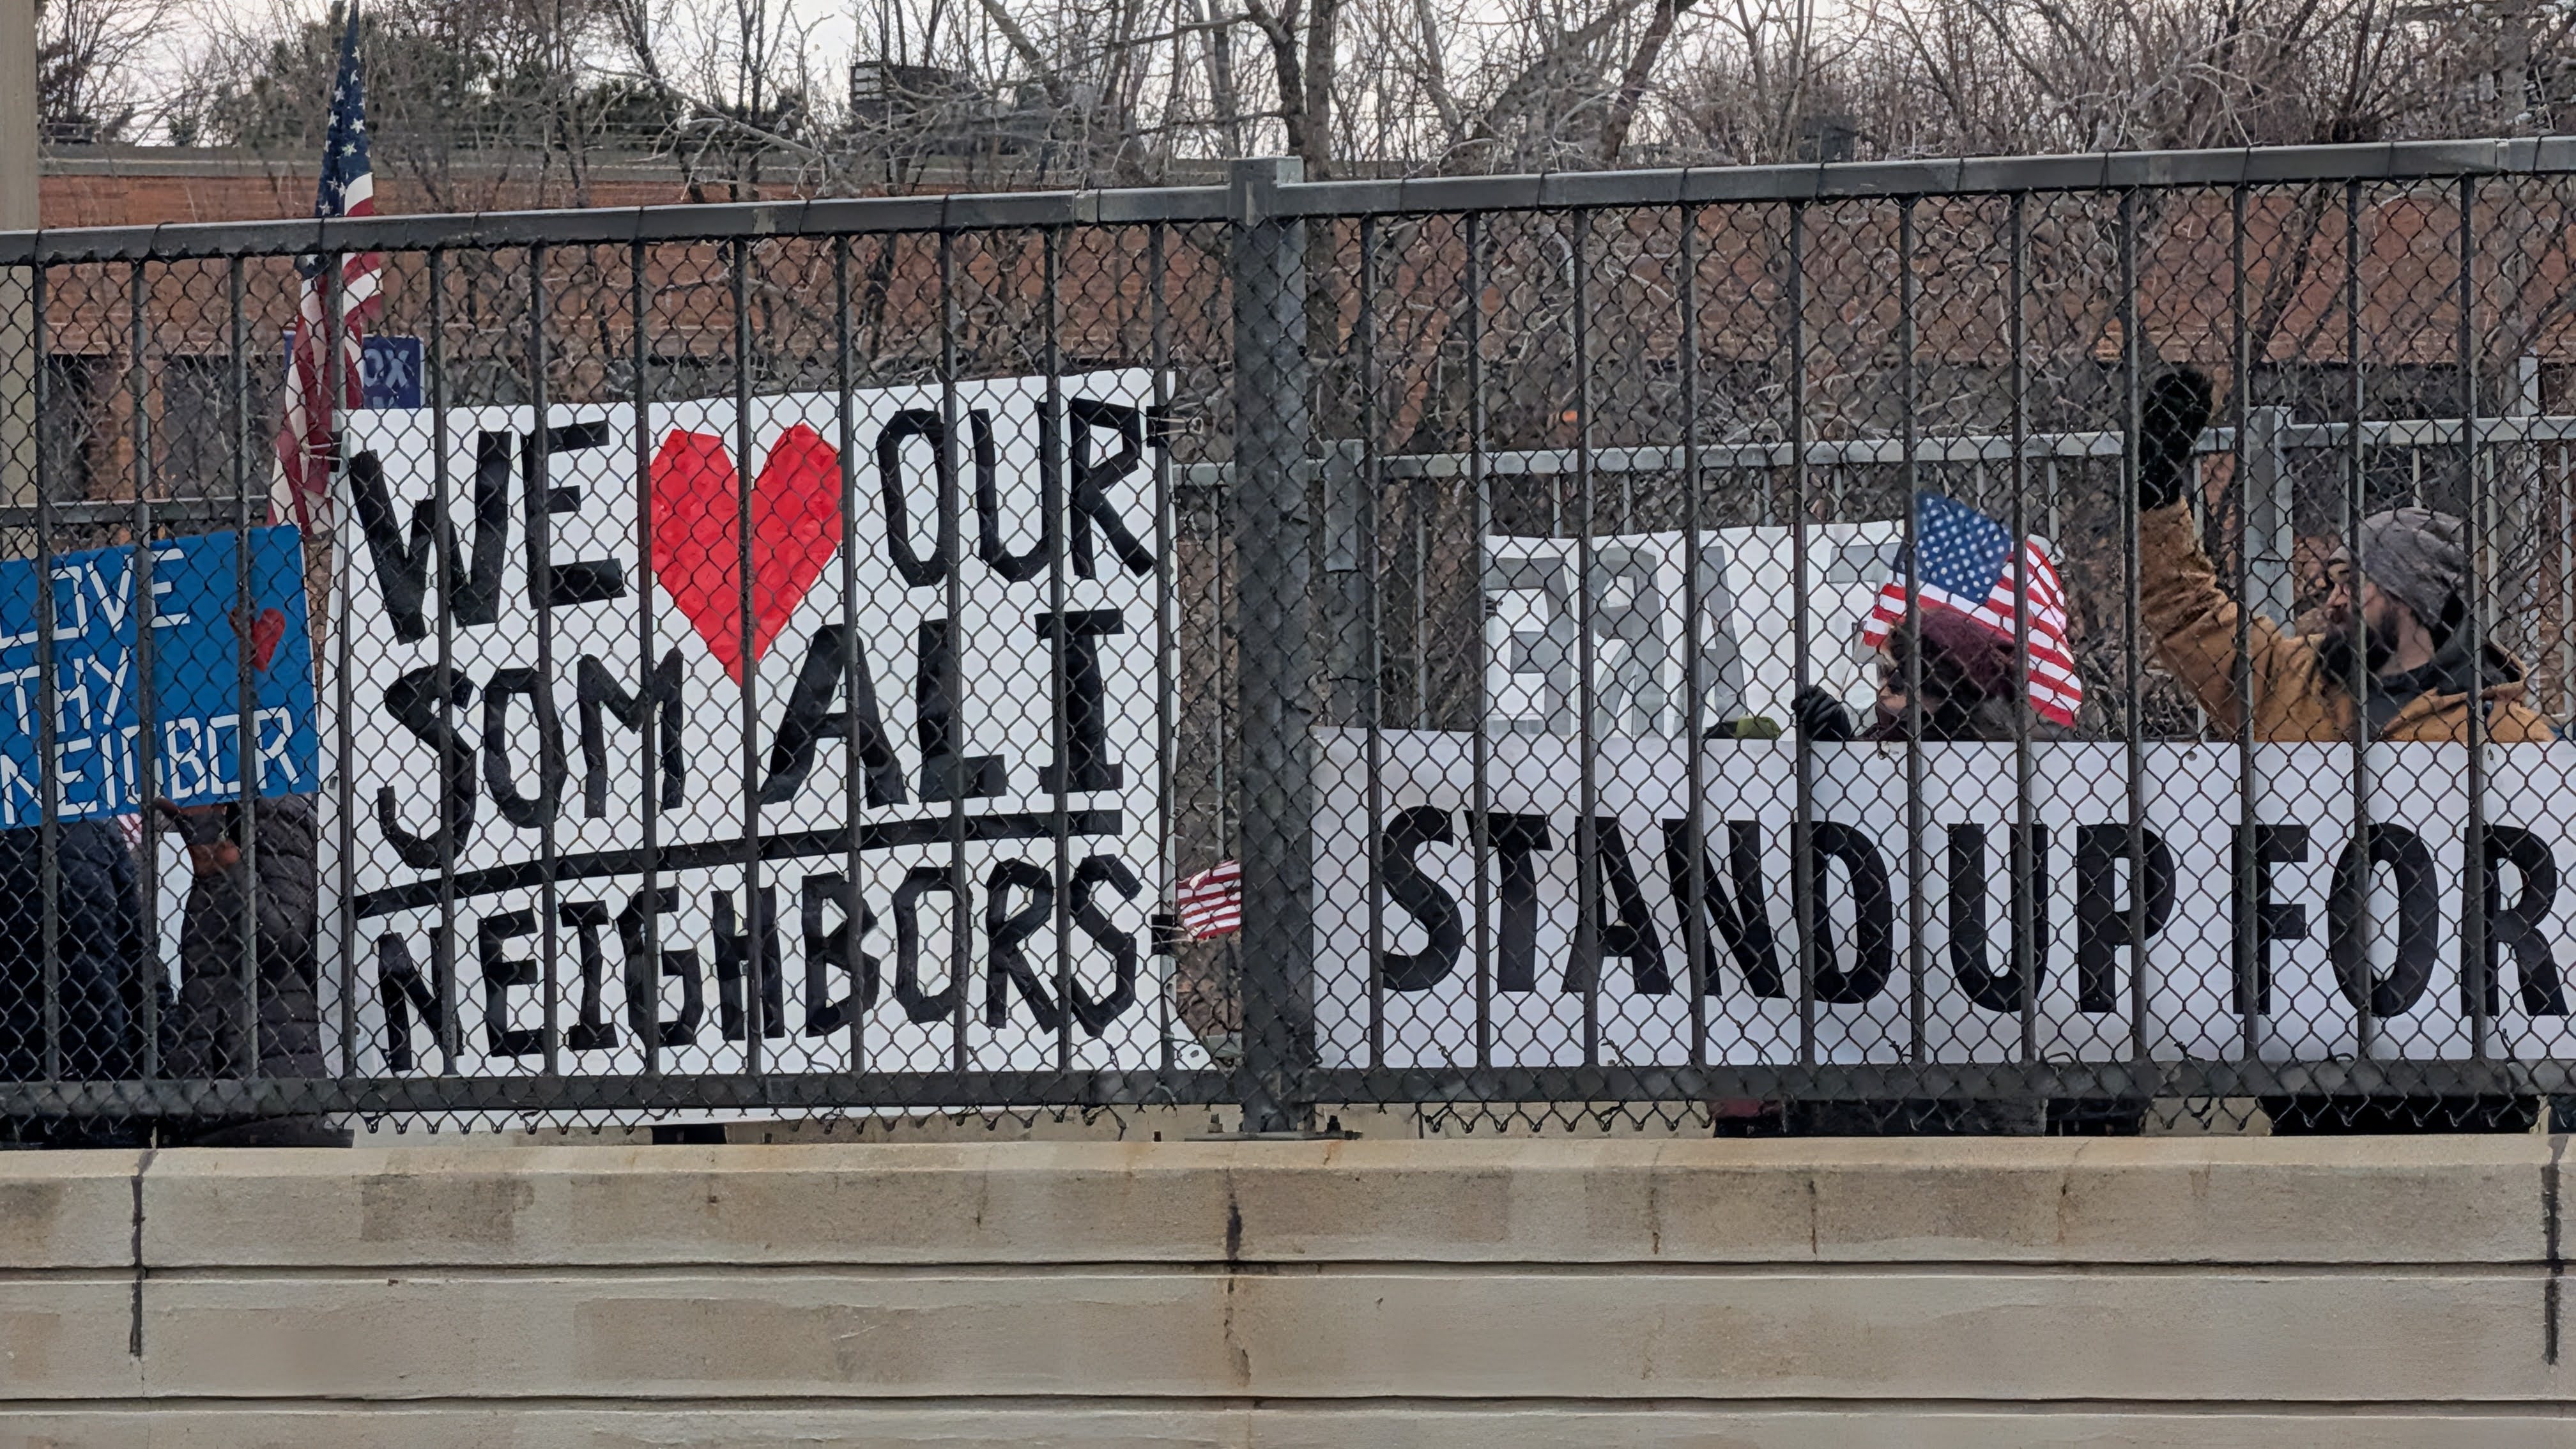 LOVE
THY
NEIGBOR
OX
WE OUR
SOMALI
NEIGHBORS
STAND UP FOR